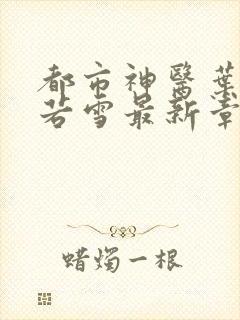 都市神醫葉
若雪最新章
蜡燭一根